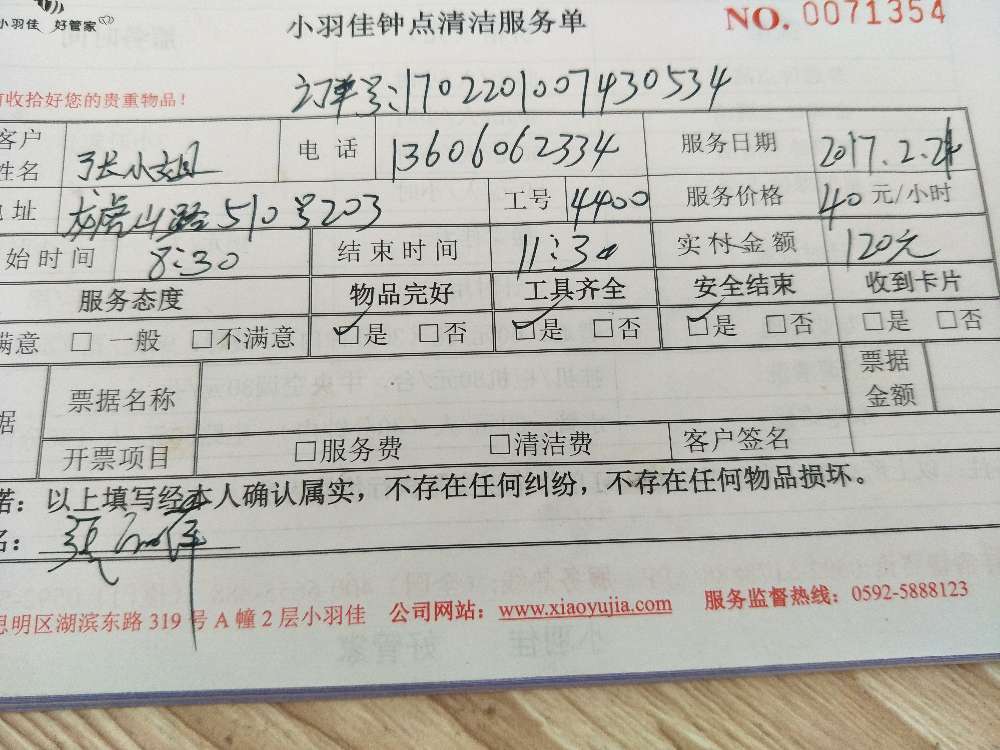 小羽佳 好管家
小羽佳钟点清洁服务单
NO. 0071354
收拾好您的贵重物品!
订单号:1702201007430534
客户姓名 张小姐 电话 13606062334 服务日期 2017.2.21
地址 龙虎山路510号203 工号 4400 服务价格 40元/小时
始时间 8:30 结束时间 11:30 实付金额 120元
服务态度 物品完好 工具齐全 安全结束 收到卡片
满意 □ 一般 □不满意 ☑是 □否 ☑是 □否 ☑是 □否 □是 □否
据 票据名称 票据金额
开票项目 □服务费 □清洁费 客户签名
诺:以上填写经本人确认属实,不存在任何纠纷,不存在任何物品损坏。
名:
思明区湖滨东路319号A幢2层小羽佳 公司网站:www.xiaoyujia.com 服务监督热线:0592-5888123